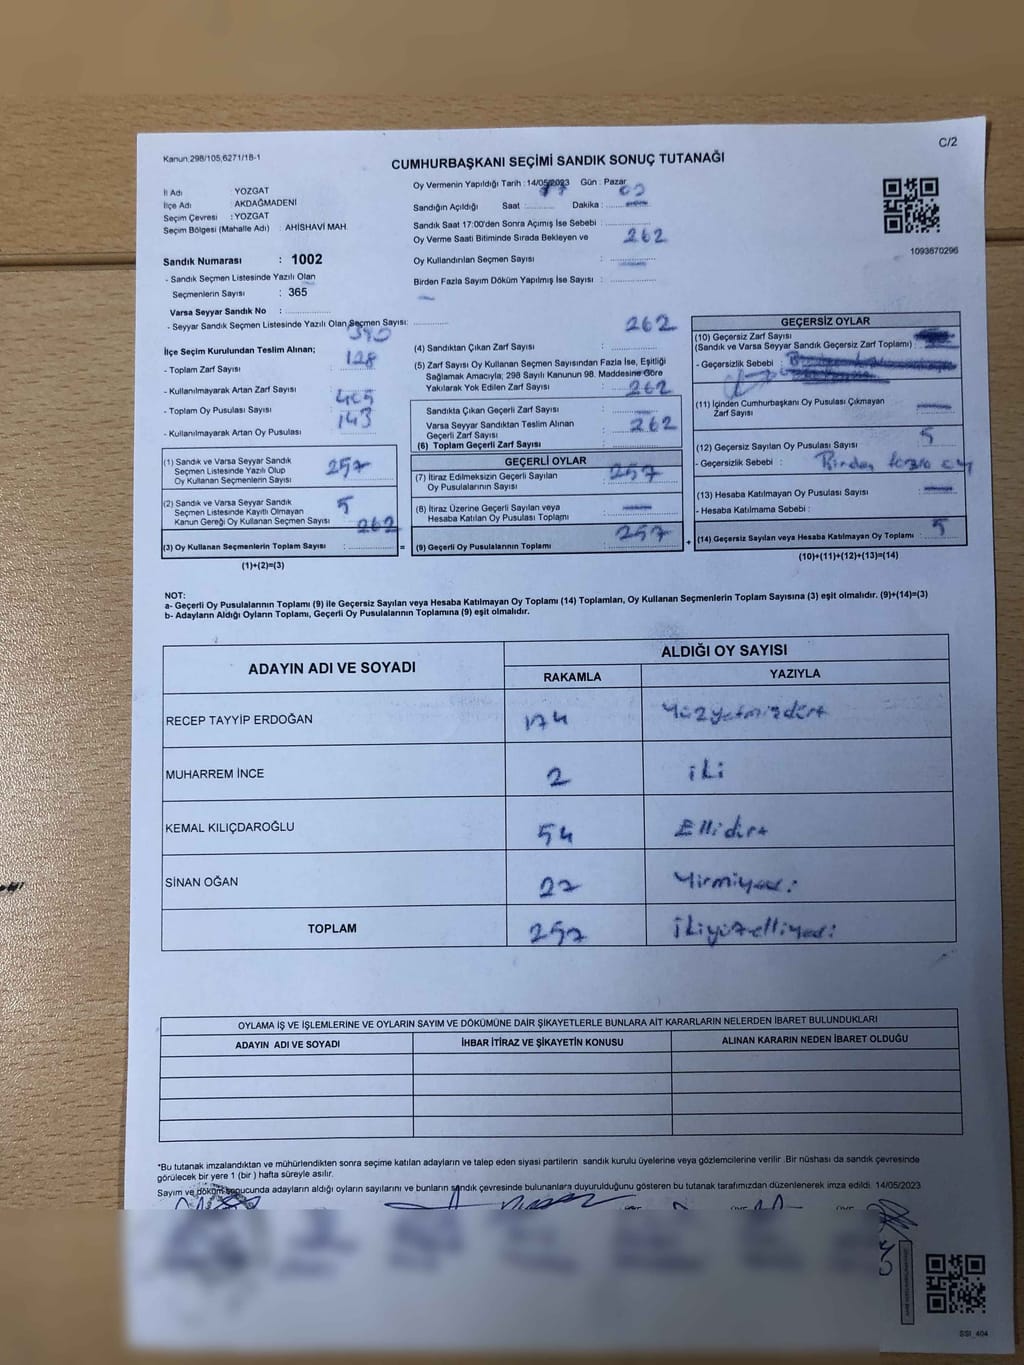 Kanun:298/105,6271/1B-1
C/2
CUMHURBAŞKANI SEÇİMİ SANDIK SONUÇ TUTANAĞI
İl Adı : YOZGAT
İlçe Adı : AKDAĞMADENİ
Seçim Çevresi : YOZGAT
Seçim Bölgesi (Mahalle Adı) : AHİSHAVİ MAH.
Sandık Numarası : 1002
- Sandık Seçmen Listesinde Yazılı Olan
Seçmenlerin Sayısı : 365
Varsa Seyyar Sandık No :
- Seyyar Sandık Seçmen Listesinde Yazılı Olan Seçmen Sayısı:
Oy Vermenin Yapıldığı Tarih : 14/05/2023 Gün : Pazar
Sandığın Açıldığı Saat : 17 Dakika : 00
Sandık Saat 17:00'den Sonra Açımış İse Sebebi :
Oy Verme Saati Bitiminde Sırada Bekleyen ve 262
Oy Kullandırılan Seçmen Sayısı :
Birden Fazla Sayım Döküm Yapılmış İse Sayısı :
1093670296
İlçe Seçim Kurulundan Teslim Alınan; 390
- Toplam Zarf Sayısı : 128
- Kullanılmayarak Artan Zarf Sayısı :
- Toplam Oy Pusulası Sayısı : 405
- Kullanılmayarak Artan Oy Pusulası : 143
(1) Sandık ve Varsa Seyyar Sandık
Seçmen Listesinde Yazılı Olup
Oy Kullanan Seçmenlerin Sayısı : 257
(2) Sandık ve Varsa Seyyar Sandık
Seçmen Listesinde Kayıtlı Olmayan 5
Kanun Gereği Oy Kullanan Seçmen Sayısı :
262
(3) Oy Kullanan Seçmenlerin Toplam Sayısı :
(1)+(2)=(3)
262
(4) Sandıktan Çıkan Zarf Sayısı :
(5) Zarf Sayısı Oy Kullanan Seçmen Sayısından Fazla İse, Eşitliği
Sağlamak Amacıyla; 298 Sayılı Kanunun 98. Maddesine Göre
Yakılarak Yok Edilen Zarf Sayısı :
262
Sandıkta Çıkan Geçerli Zarf Sayısı :
Varsa Seyyar Sandıktan Teslim Alınan
Geçerli Zarf Sayısı : 262
(6) Toplam Geçerli Zarf Sayısı :
GEÇERLİ OYLAR
(7) İtiraz Edilmeksizin Geçerli Sayılan 257
Oy Pusulalarının Sayısı :
(8) İtiraz Üzerine Geçerli Sayılan veya
Hesaba Katılan Oy Pusulası Toplamı :
(9) Geçerli Oy Pusulalarının Toplamı : 257
GEÇERSİZ OYLAR
(10) Geçersiz Zarf Sayısı
(Sandık ve Varsa Seyyar Sandık Geçersiz Zarf Toplamı) :
- Geçersizlik Sebebi :
(11) İçinden Cumhurbaşkanı Oy Pusulası Çıkmayan
Zarf Sayısı :
(12) Geçersiz Sayılan Oy Pusulası Sayısı : 5
- Geçersizlik Sebebi : Birden fazla oy
(13) Hesaba Katılmayan Oy Pusulası Sayısı :
- Hesaba Katılmama Sebebi :
(14) Geçersiz Sayılan veya Hesaba Katılmayan Oy Toplamı : 5
(10)+(11)+(12)+(13)=(14)
NOT:
a- Geçerli Oy Pusulalarının Toplamı (9) ile Geçersiz Sayılan veya Hesaba Katılmayan Oy Toplamı (14) Toplamları, Oy Kullanan Seçmenlerin Toplam Sayısına (3) eşit olmalıdır. (9)+(14)=(3)
b- Adayların Aldığı Oyların Toplamı, Geçerli Oy Pusulalarının Toplamına (9) eşit olmalıdır.
ADAYIN ADI VE SOYADI ALDIĞI OY SAYISI
RAKAMLA YAZIYLA
RECEP TAYYİP ERDOĞAN 174 Yüzyetmişdört
MUHARREM İNCE 2 iki
KEMAL KILIÇDAROĞLU 54 Ellidört
SİNAN OĞAN 27 Yirmiyedi
TOPLAM 257 ikiyüzelliyedi
OYLAMA İŞ VE İŞLEMLERİNE VE OYLARIN SAYIM VE DÖKÜMÜNE DAİR ŞİKAYETLERLE BUNLARA AİT KARARLARIN NELERDEN İBARET BULUNDUKLARI
ADAYIN ADI VE SOYADI İHBAR İTİRAZ VE ŞİKAYETİN KONUSU ALINAN KARARIN NEDEN İBARET OLDUĞU
*Bu tutanak imzalandıktan ve mühürlendikten sonra seçime katılan adayların ve talep eden siyasi partilerin sandık kurulu üyelerine veya gözlemcilerine verilir .Bir nüshası da sandık çevresinde
görülecek bir yere 1 (bir ) hafta süreyle asılır.
Sayım ve döküm sonucunda adayların aldığı oyların sayılarını ve bunların sandık çevresinde bulunanlara duyurulduğunu gösteren bu tutanak tarafımızdan düzenlenerek imza edildi. 14/05/2023
SSI_404